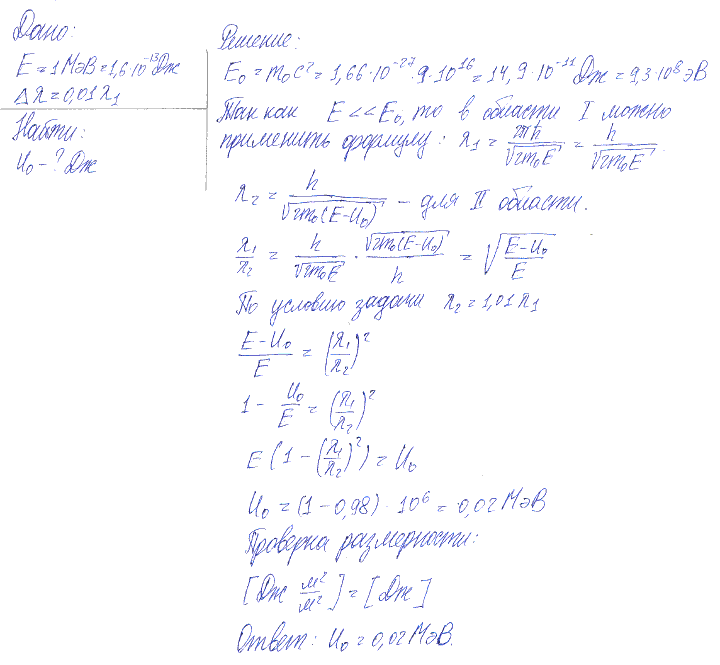 Дано:
E = 1 МэВ = 1,6·10⁻¹³ Дж
Δλ = 0,01 λ₁
Найти:
U₀ – ? Дж
Решение:
E₀ = m₀c² = 1,66·10⁻²⁷·9·10¹⁶ = 14,9·10⁻¹¹ Дж = 9,3·10⁸ эВ
Так как E << E₀, то в области I можно
применить формулу: λ₁ = 2πħ/√(2m₀E) = h/√(2m₀E)
λ₂ = h/√(2m₀(E-U₀)) – для II области.
λ₁/λ₂ = h/√(2m₀E) · √(2m₀(E-U₀))/h = √((E-U₀)/E)
По условию задачи λ₂ = 1,01 λ₁
(E-U₀)/E = (λ₁/λ₂)²
1 - U₀/E = (λ₁/λ₂)²
E (1 - (λ₁/λ₂)²) = U₀
U₀ = (1 - 0,98) · 10⁶ = 0,02 МэВ
Проверка размерности:
[Дж м²/м²] = [Дж]
Ответ: U₀ = 0,02 МэВ.